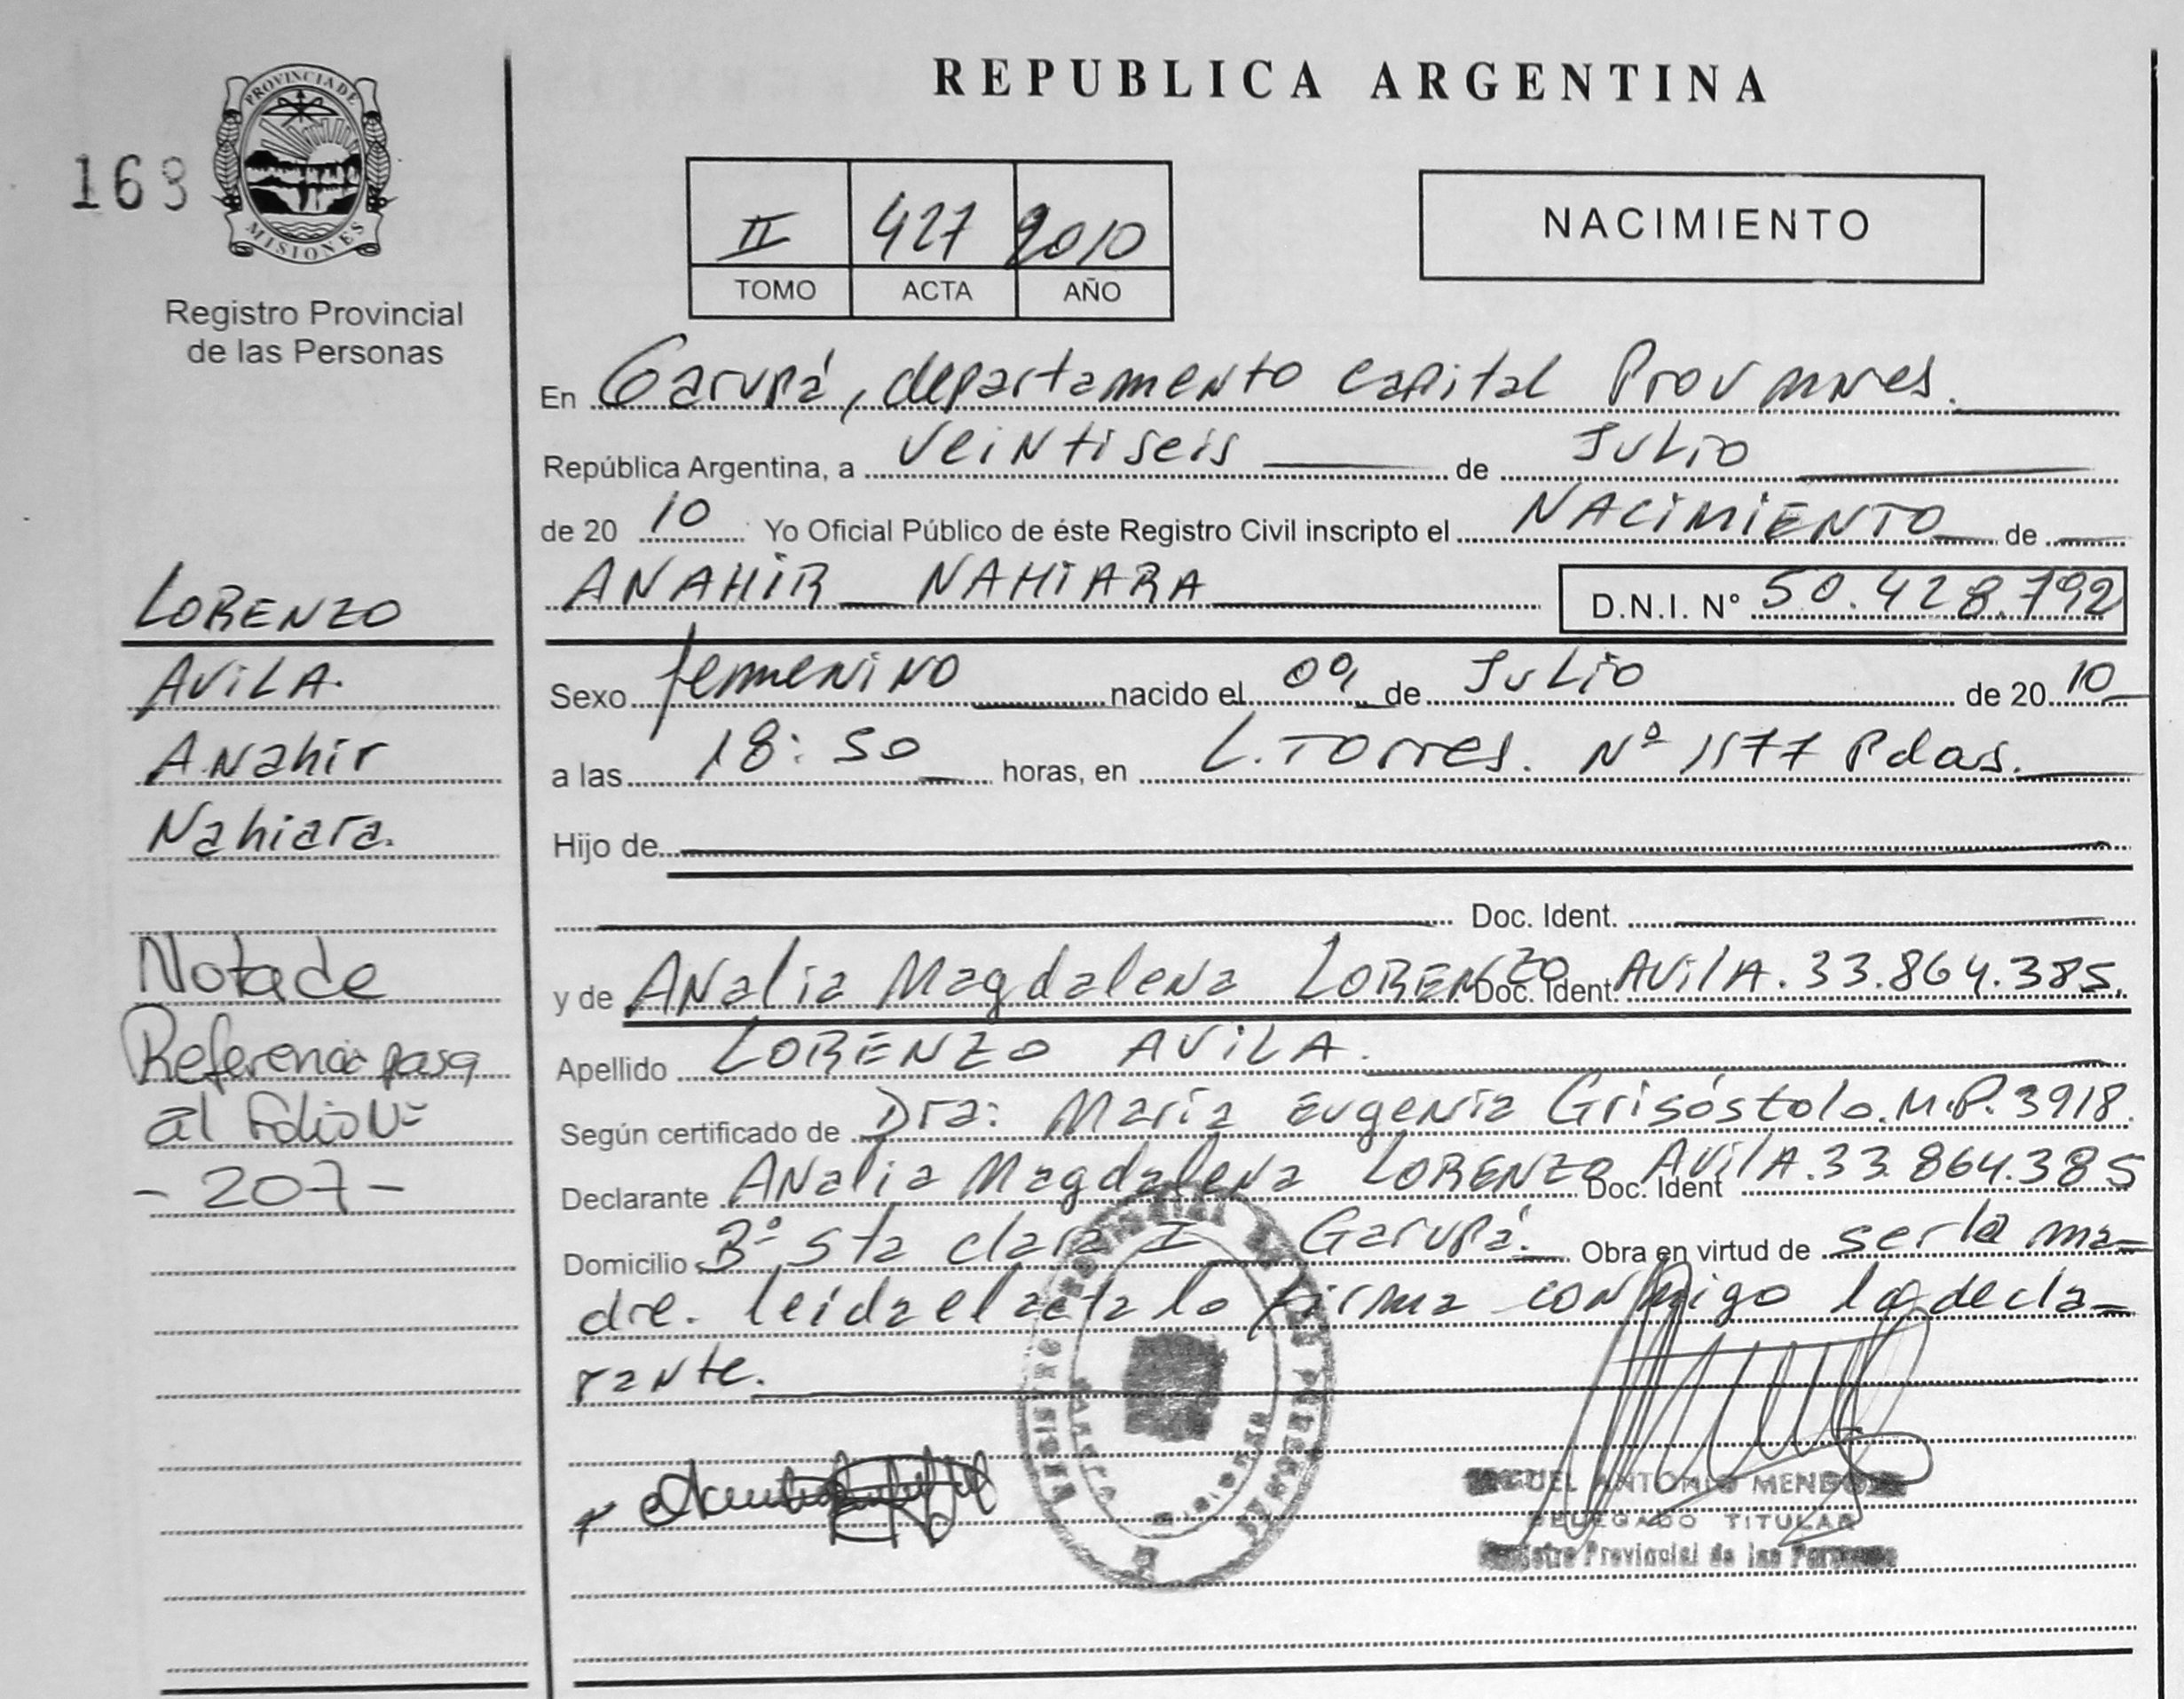 REPUBLICA ARGENTINA
PROVINCIA DE
MISIONES
163
Registro Provincial
de las Personas
II 427 2010
TOMO ACTA AÑO
NACIMIENTO
En Garupá, departamento capital Prov
República Argentina, a veintiseis de Julio
de 20 10 Yo Oficial Público de éste Registro Civil inscripto el NACIMIENTO de
ANAHIR NAHIARA D.N.I. Nº 50.428.792
Sexo femenino nacido el 09 de Julio de 20 10
a las 18:50 horas, en L. Torres. Nº 1177 Pdas.
Hijo de
Doc. Ident.
y de Analia Magdalena LORENZO AVILA. Doc. Ident. 33.864.385.
Apellido LORENZO AVILA.
Según certificado de Dra: María Eugenia Grisóstolo. M.P. 3918.
Declarante Analia Magdalena LORENZO AVILA. Doc. Ident 33.864.385
Domicilio Bº Sta clara I Garupá. Obra en virtud de ser la ma-
dre. leida el acta la firma conmigo la decla-
rante.
LORENZO
AVILA.
Anahir
Nahiara.
Nota de
Referencia pasa
al Folio Nº
- 207 -
ANTONIO
DELEGADO TITULAR
Provincial de las